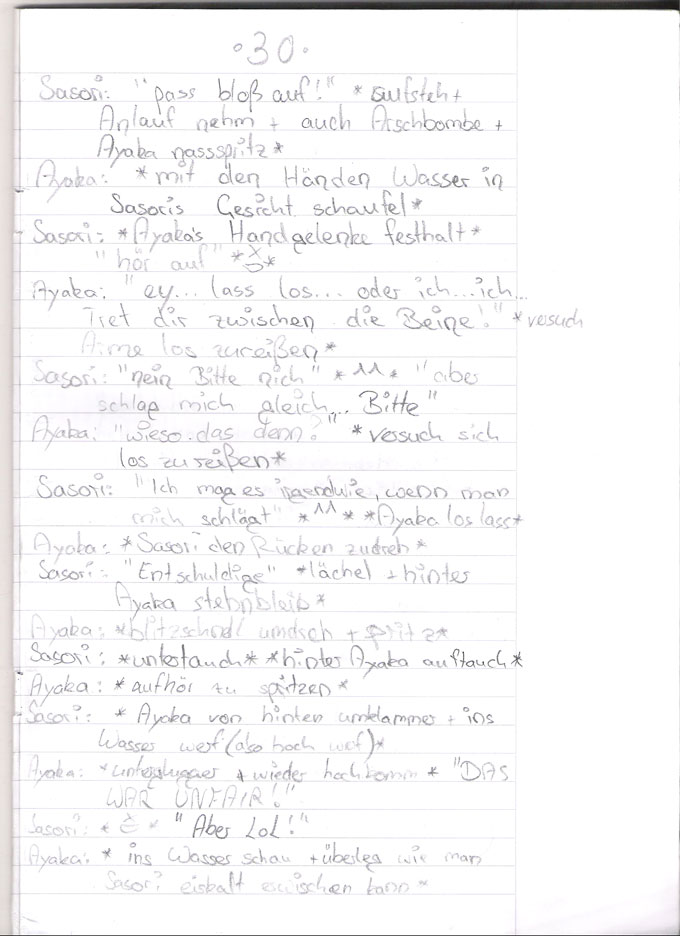 •30•
Sasori: "pass bloß auf!" *aufsteh +
Anlauf nehm + auch Arschbombe +
Ayaka nassspritz*
Ayaka: *mit den Händen Wasser in
Sasoris Gesicht schaufel*
Sasori: *Ayaka's Handgelenke festhalt*
"hör auf"
Ayaka: "ey... lass los... oder ich...ich...
Tret dir zwischen die Beine!" *vesuch
Arme los zureißen*
Sasori: "nein Bitte nich" *^^* "aber
schlag mich gleich... Bitte"
Ayaka: "wieso das denn?" *vesuch sich
los zu reißen*
Sasori: "Ich mag es irgendwie, wenn man
mich schlägt" *^^* *Ayaka los lass*
Ayaka: *Sasori den Rücken zudreh*
Sasori: "Entschuldige" *lächel + hinter
Ayaka stehnbleib*
Ayaka: *blitzschnell umdreh + spritz*
Sasori: *untertauch* *hinter Ayaka auftauch*
Ayaka: *aufhör zu spritzen*
Sasori: *Ayaka von hinten umklammer + ins
Wasser werf (also hoch werf)*
Ayaka: + wieder hochkomm* "DAS
WAR UNFAIR!"
Sasori: "Aber LoL!"
Ayaka: *ins Wasser schau + überleg wie man
Sasori eiskalt erwischen kann*